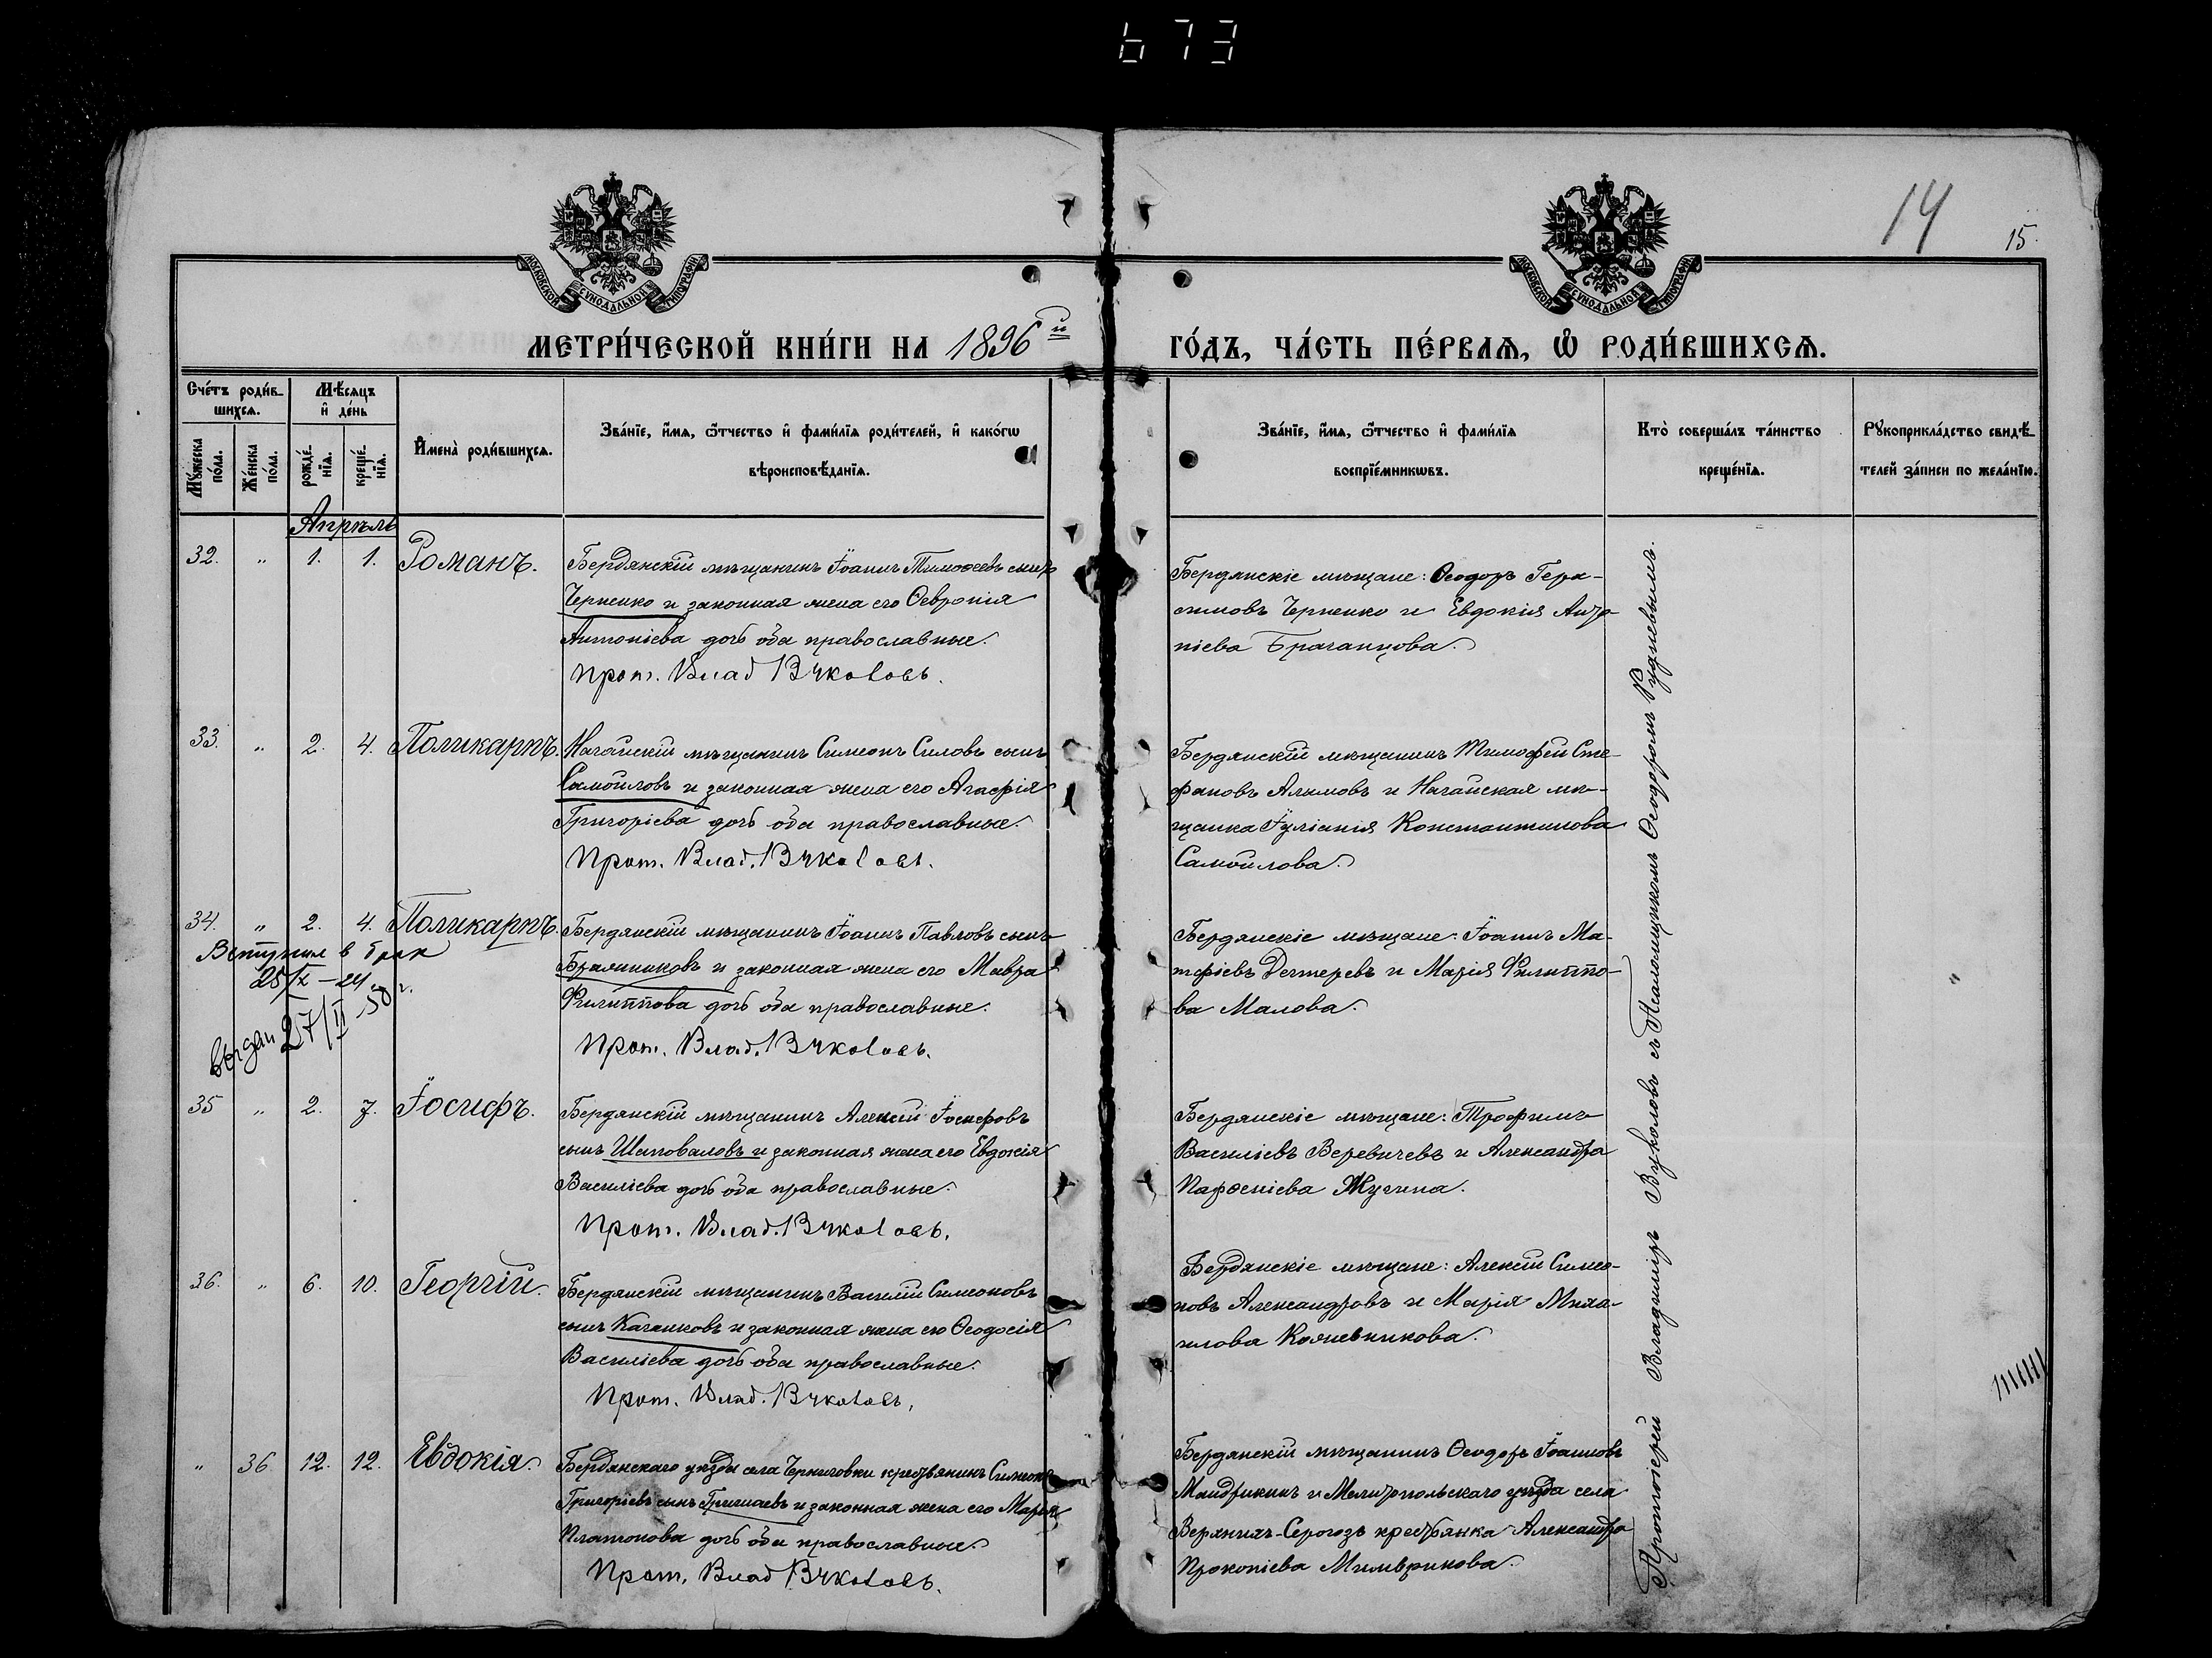 673
14
15.
МОСКОВСКОЙ СѴНОДАЛЬНОЙ ТИПОГРАФІИ
МОСКОВСКОЙ СѴНОДАЛЬНОЙ ТИПОГРАФІИ
МЕТРИ́ЧЕСКОЙ КНИ́ГИ НА 1896й ГО́ДЪ, ЧА́СТЬ ПЕ́РВАѦ, Ѡ РОДИ́ВШИХСѦ.
Сче́тъ роди́в-
шихсѧ.
Мѣ́сѧцъ
и҆ де́нь
Мꙋ́жеска
по́ла.
Же́нска
по́ла.
рожде́-
нїѧ.
креще́-
нїѧ.
И҆мена̀ роди́вшихсѧ.
Зва́нїе, и҆́мѧ, ѻ҆́тчество и҆ фами́лїѧ роди́телей, и҆ како́гѡ
вѣроисповѣ́данїѧ.
Зва́нїе, и҆́мѧ, ѻ҆́тчество и҆ фами́лїѧ
воспрїе́мникѡвъ.
Кто̀ соверша́лъ та́инство
креще́нїѧ.
Рꙋкоприкла́дство свидѣ́-
телей за́писи по жела́нїю.
Апрѣль
32. " 1. 1. Романъ.
Бердянскій мѣщанинъ Іоаннъ Тимоѳеевъ сынъ
Черненко и законная жена его Ѳевронія
Антоніева дочь оба православные.
Прот. Влад. Вуколовъ.
Бердянскіе мѣщане: Ѳеодоръ Гера-
симовъ Черненко и Евдокія Анто-
ніева Браганцова.
33. " 2. 4. Поликарпъ.
Ногайскій мѣщанинъ Симеонъ Силовъ сынъ
Самойловъ и законная жена его Агафія
Григоріева дочь оба православные.
Прот. Влад. Вуколовъ.
Бердянскій мѣщанинъ Тимофей Сте-
фановъ Алимовъ и Ногайская мѣ-
щанка Іуліанія Константинова
Самойлова.
34. " 2. 4. Поликарпъ.
Вступил в брак
25/IX-24 г.
выдан 27/II-50 г.
Бердянскій мѣщанинъ Іоаннъ Павловъ сынъ
и законная жена его Мавра
Филиппова дочь оба православные.
Прот. Влад. Вуколовъ.
Бердянскіе мѣщане: Іоаннъ Ма-
тфіевъ Дегтеревъ и Марія Филиппо-
ва Малова.
"
35 " 2. 7. Іосифъ.
Бердянскій мѣщанинъ Алексій Іосифовъ
сынъ Шаповаловъ и законная жена его Евдокія
Василіева дочь оба православные.
Прот. Влад. Вуколовъ.
Бердянскіе мѣщане: Трофимъ
Василіевъ Веревичевъ и Александра
Парѳеніева
36. " 6. 10. Георгій.
Бердянскій мѣщанинъ Василій Симеоновъ
сынъ и законная жена его Ѳеодосія
Василіева дочь оба православные.
Прот. Влад. Вуколовъ.
Бердянскіе мѣщане: Алексій Симео-
новъ Александровъ и Марія Миха-
илова Кожевникова.
" 36 12. 12. Евдокія.
Бердянскаго уѣзда села Черниговки крестьянинъ Симеонъ
Григоріевъ сынъ и законная жена его Марія
Платонова дочь оба православные.
Прот. Влад. Вуколовъ.
Бердянскій мѣщанинъ Ѳеодоръ Іоанновъ
Мандрикинъ и Мелитопольскаго уѣзда села
Верхнихъ-Серогозъ крестьянка Александра
Прокопіева
Протоіерей Владиміръ Вуколовъ съ Псаломщикомъ Ѳеодоромъ Рудневымъ.